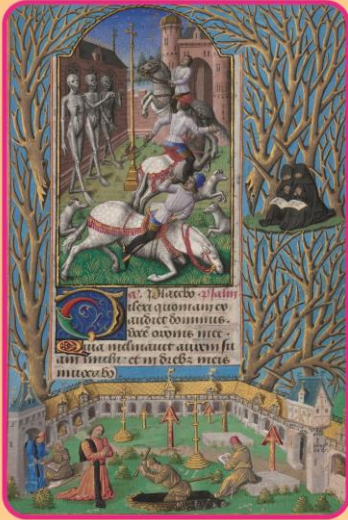 añ. Placebo. Psalm⁹
Dilexi quoniam ex
audiet dominus.
vocē orationis mee.
Quia inclinavit aurem su
am michi et in diebꝰ meis
invocabo.